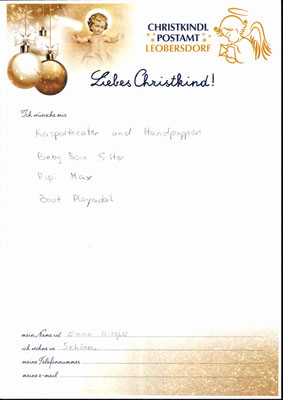 CHRISTKINDL
POSTAMT
LEOBERSDORF
Liebes Christkind!
Ich wünsche mir
Kasperltheater und Handpuppen
Baby Born
Pip. Max
Boot Playmobil
mein Name ist
ich wohne in Schönau
meine Telefonnummer
meine e-mail